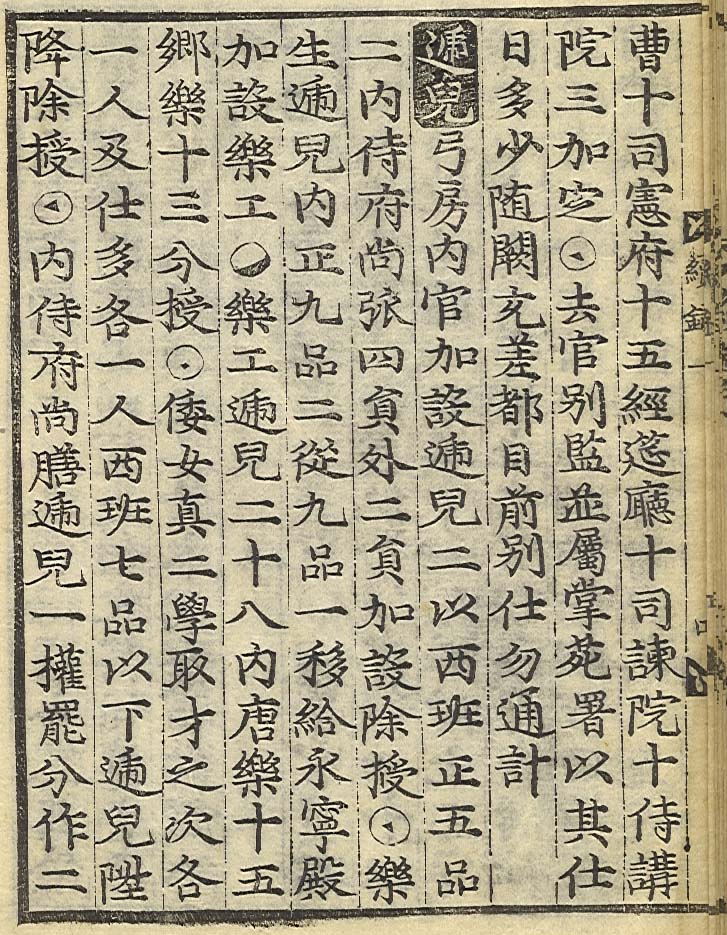 曹十司憲府十五經筵廳十司諫院十侍講
院三加定○去官别監並屬掌苑署以其仕
日多少随闕充差都目前别仕勿通計
遞兒弓房内官加設遞兒二以西班正五品
二内侍府尚弧四貟外二貟加設除授○樂
生遞兒内正九品二從九品一移給永寧殿
加設樂工○樂工遞兒二十八内唐樂十五
鄉樂十三分授○倭女真二學取才之次各
一人及仕多各一人西班七品以下遞兒陞
降除授○内侍府尚膳遞兒一權罷分作二
錄